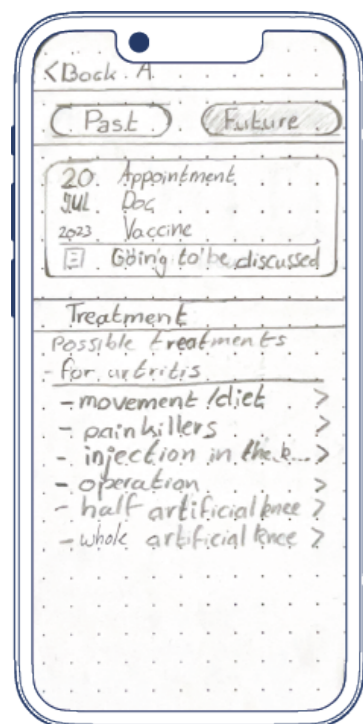 <Back A
Past Future
20 Appointment
JUL. Doc
2023 Vaccine
Going to be discussed
Treatment
Possible treatments
- for artritis
- movement/diet >
- painkillers >
- injection in the k... >
- operation >
- half artificial knee >
- whole artificial knee >